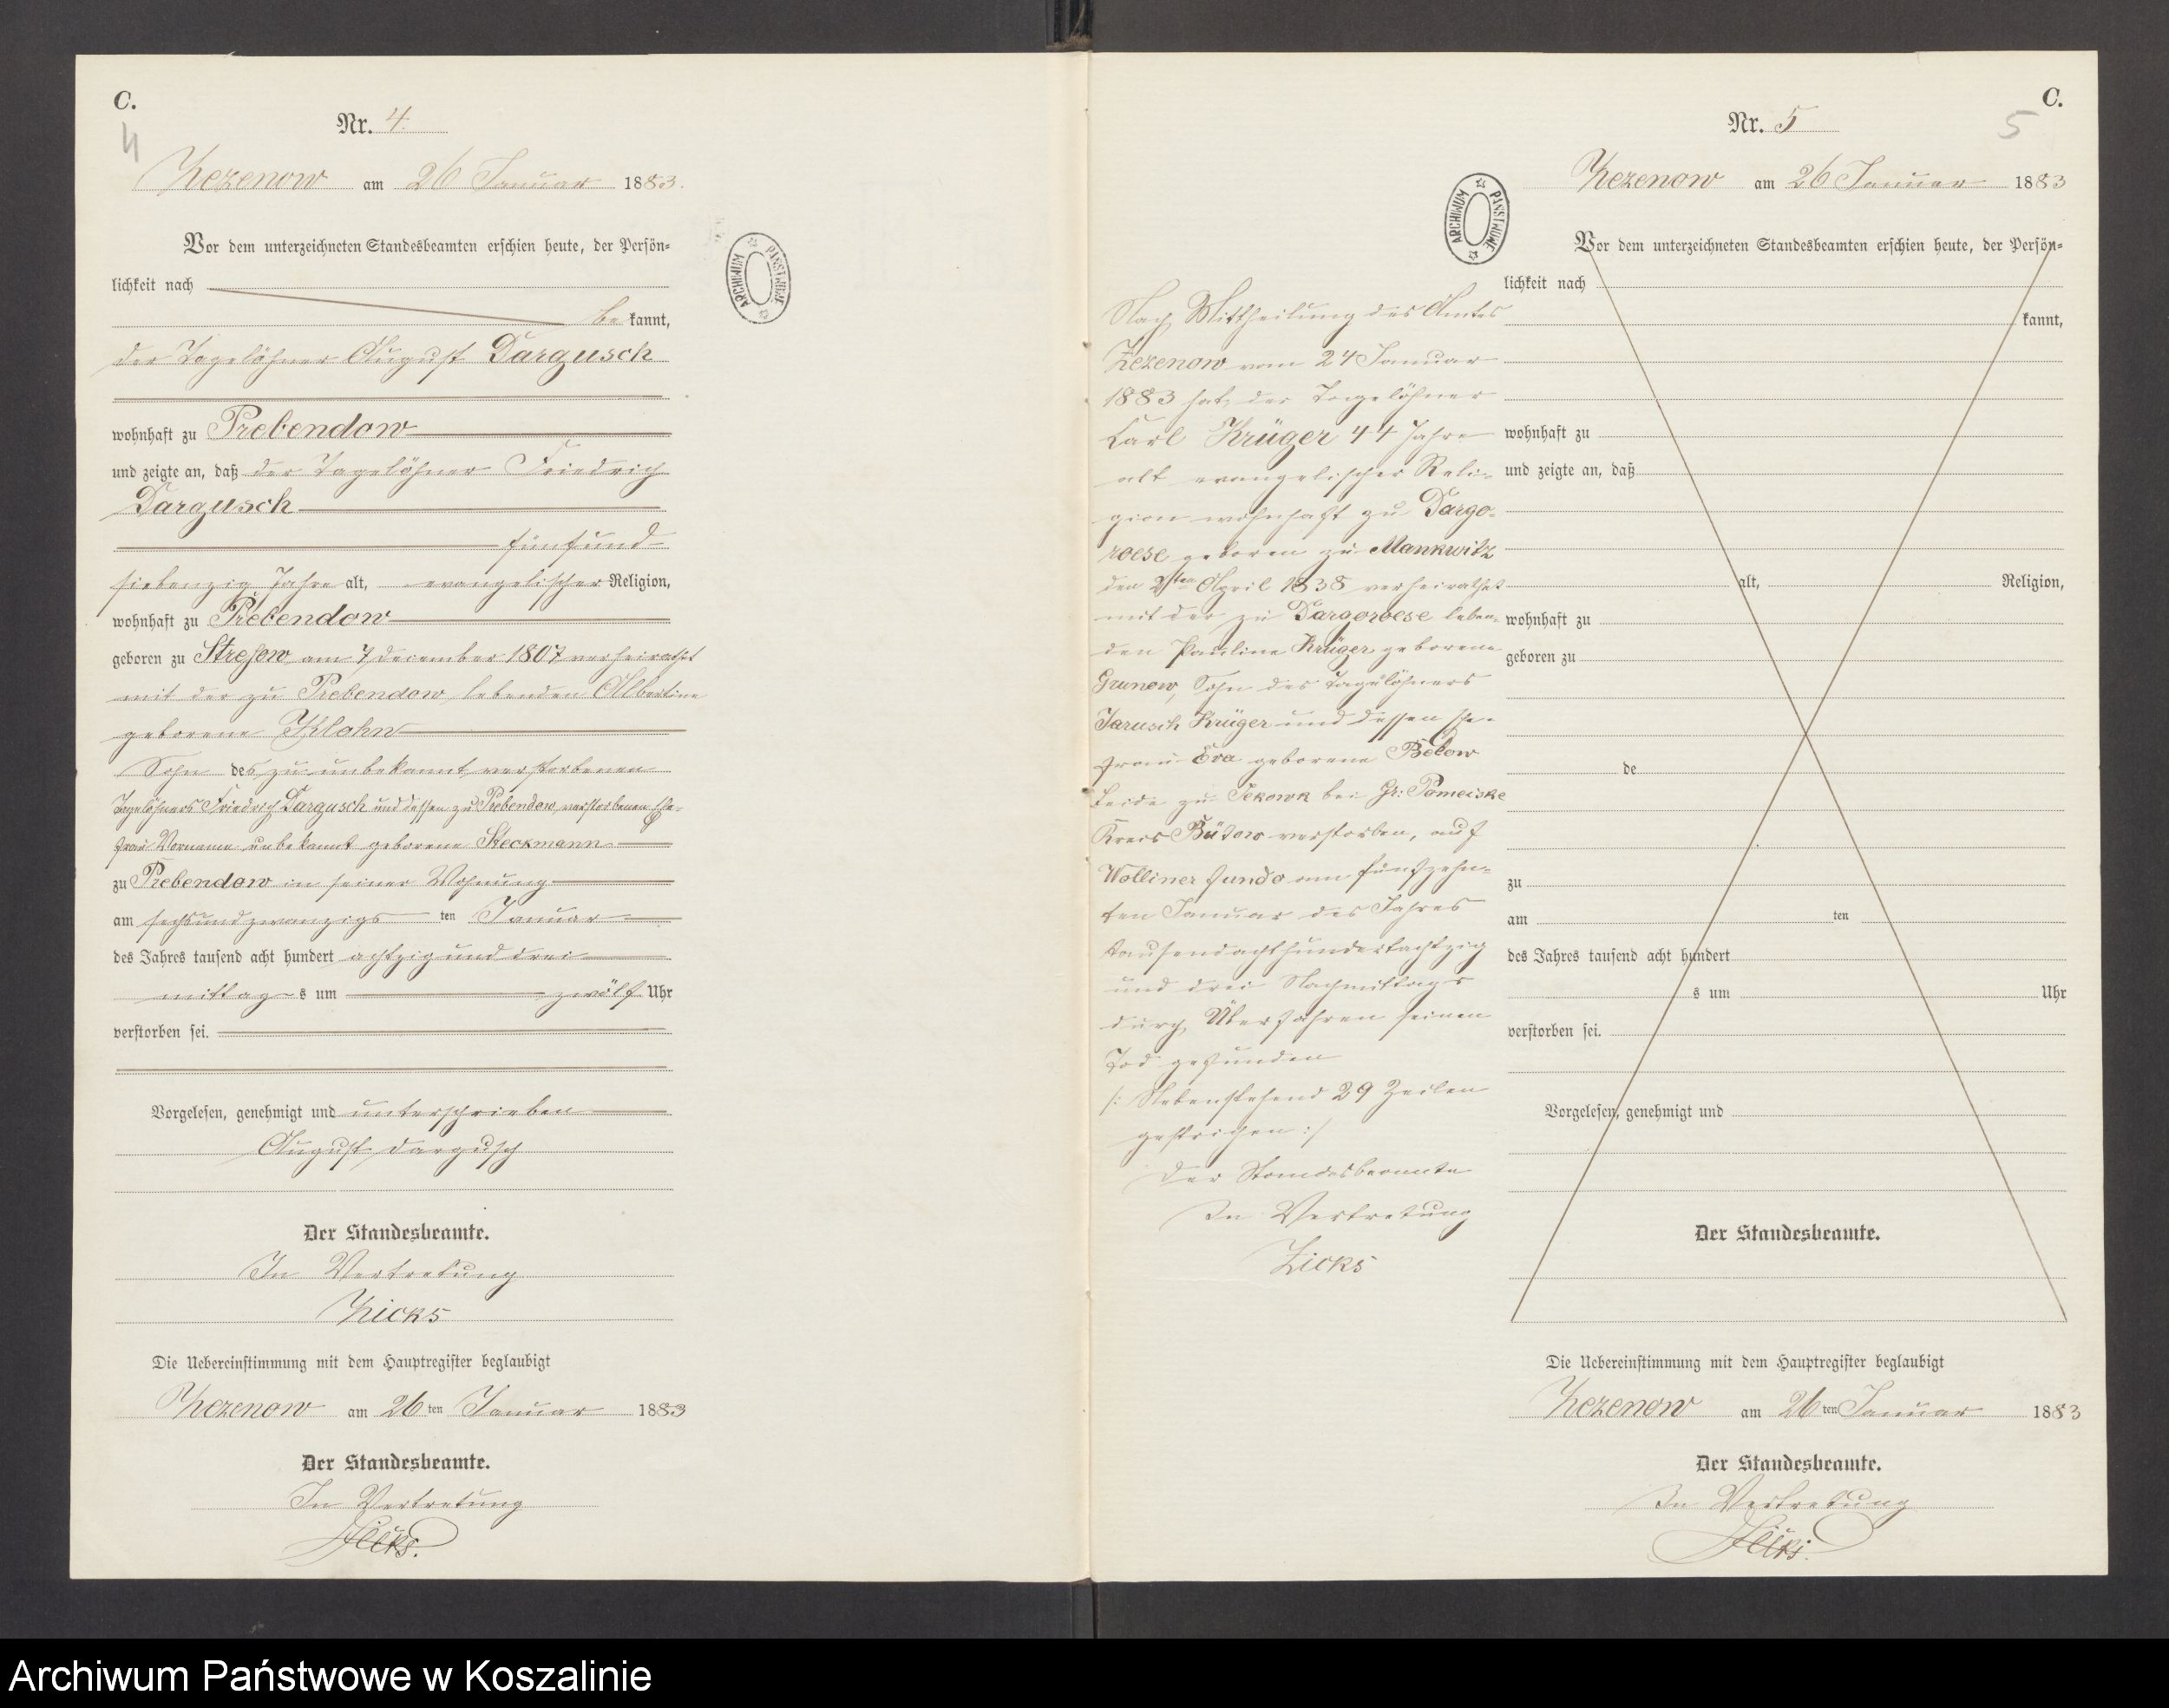 C.
4
Nr. 4.
Zezenow am 26 Januar 1883.
Vor dem unterzeichneten Standesbeamten erschien heute, der Persön-
lichkeit nach
be kannt,
der Tagelöhner August Dargusch
wohnhaft zu Prebendow
und zeigte an, daß der Tagelöhner Friedrich
Dargusch
fünfund-
siebenzig Jahre alt, evangelischer Religion,
wohnhaft zu Prebendow
geboren zu Stresow am 7 December 1807 verheirathet
mit der zu Prebendow lebenden Albertine
geborene Klahn
Sohn des zu unbekannt verstorbenen
Tagelöhners Friedrich Dargusch und dessen zu Prebendow verstorbenen Ehe-
frau Vorname unbekannt geborene Steckmann
zu Prebendow in seiner Wohnung
am sechsundzwanzigs ten Januar
des Jahres tausend acht hundert achtzig und drei
mittag s um zwölf Uhr
verstorben sei.
Vorgelesen, genehmigt und unterschrieben
August Dargusch
Der Standesbeamte.
In Vertretung
Zicks
Die Uebereinstimmung mit dem Hauptregister beglaubigt
Zezenow am 26 ten Januar 1883
Der Standesbeamte.
In Vertretung
Zicks.
ARCHIWUM PAŃSTWOWE
C.
5
Nr. 5
Zezenow am 26 Januar 1883
ARCHIWUM PAŃSTWOWE
Nach Mittheilung des Amtes
Zezenow vom 24 Januar
1883 hat der Tagelöhner
Carl Krüger 44 Jahre
alt evangelischer Reli-
gion wohnhaft zu Dargo-
roese geboren zu Mankwitz
den 2ten April 1838 verheirathet
mit der zu Dargoroese leben-
den Pauline Krüger geborene
Grunow, Sohn des Tagelöhners
Jarusch Krüger und dessen Ehe-
frau Eva geborene Below
beide zu Jekowk bei Gr: Pomeiske
Kreis Bütow verstorben, auf
Wolliner Fundo am fünfzehn-
ten Januar des Jahres
tausendachthundertachtzig
und drei Nachmittags
durch Überfahren seinen
Tod gefunden
/: Nebenstehend 29 Zeilen
gestrichen :/
Der Standesbeamte
In Vertretung
Zicks
Vor dem unterzeichneten Standesbeamten erschien heute, der Persön-
lichkeit nach
kannt,
wohnhaft zu
und zeigte an, daß
alt, Religion,
wohnhaft zu
geboren zu
de
zu
am ten
des Jahres tausend acht hundert
s um Uhr
verstorben sei.
Vorgelesen, genehmigt und
Der Standesbeamte.
Die Uebereinstimmung mit dem Hauptregister beglaubigt
Zezenow am 26 ten Januar 1883
Der Standesbeamte.
In Vertretung
Zicks.
Archiwum Państwowe w Koszalinie